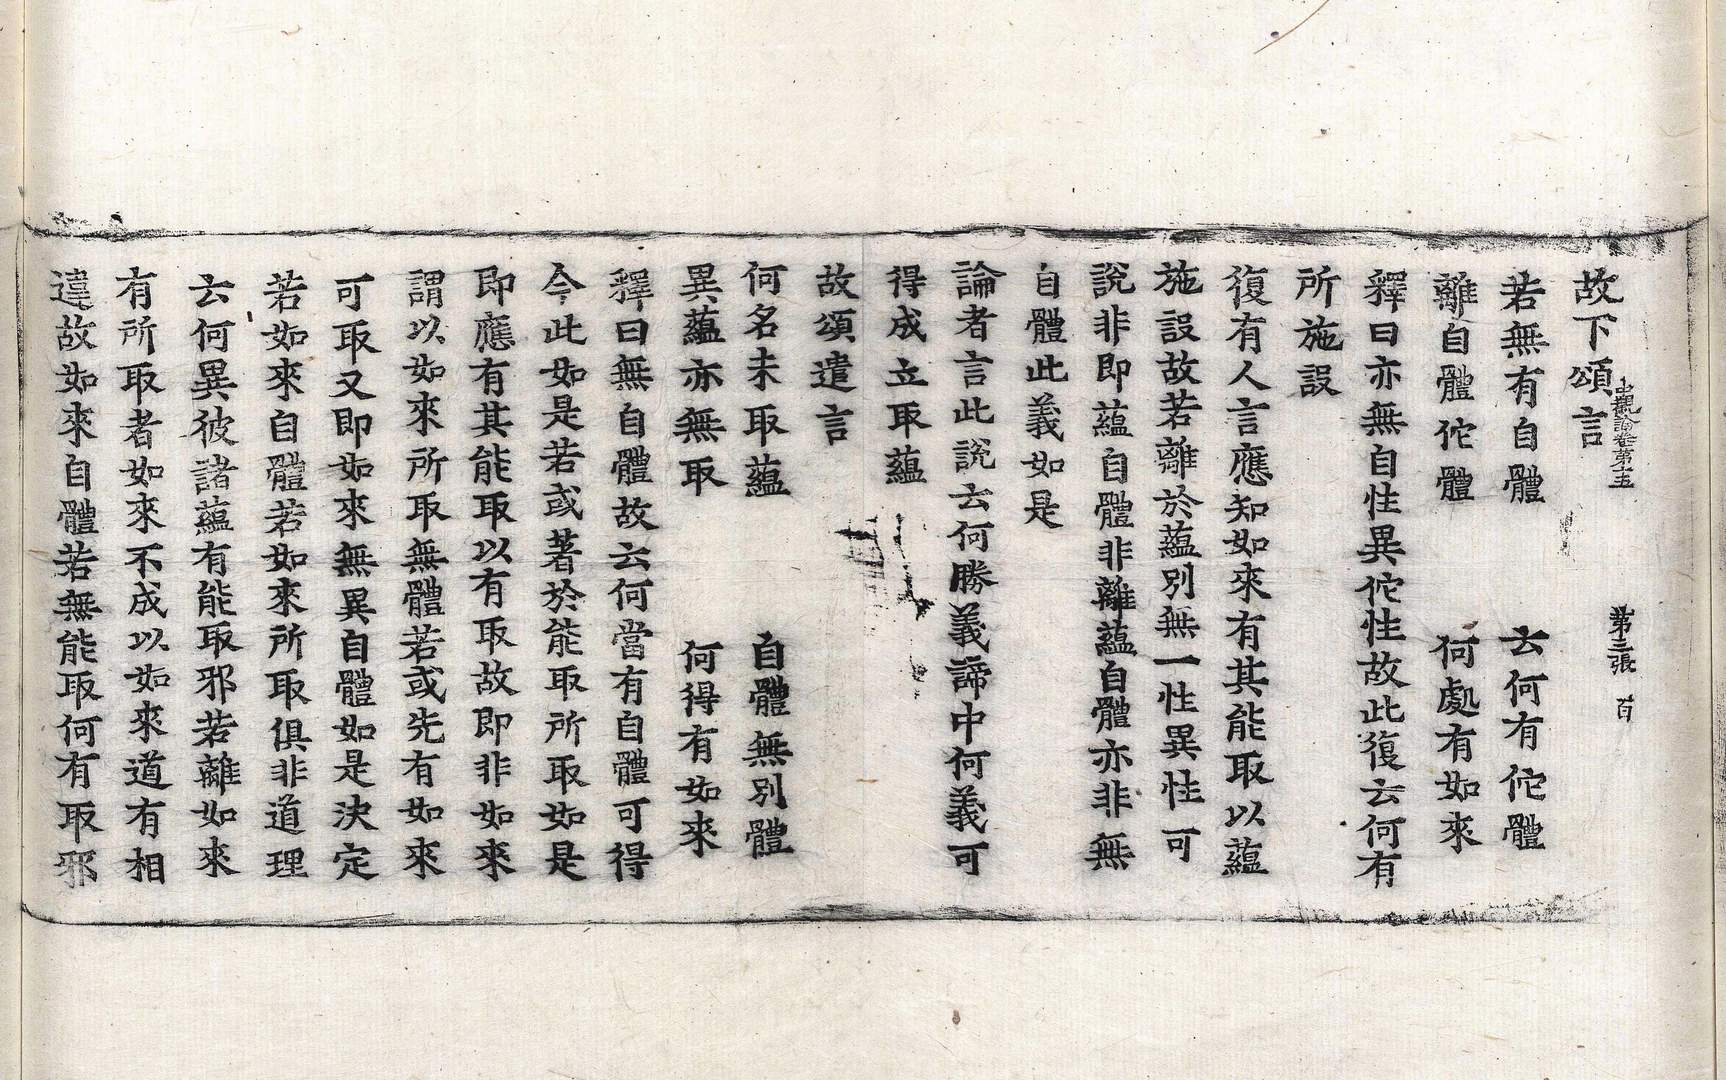 故下頌言
中觀論卷第十五　第三張　百
若無有自體　云何有佗體
離自體佗體　何處有如來
釋曰亦無自性異佗性故此復云何有
所施設
復有人言應知如來有其能取以蘊
施設故若離於蘊別無一性異性可
說非即蘊自體非離蘊自體亦非無
自體此義如是
論者言此說云何勝義諦中何義可
得成立取蘊
故頌遣言
何名未取蘊　自體無別體
異蘊亦無取　何得有如來
釋曰無自體故云何當有自體可得
今此如是若或著於能取所取如是
即應有其能取以有取故即非如來
謂以如來所取無體若或先有如來
可取又即如來無異自體如是決定
若如來自體若如來所取俱非道理
云何異彼諸蘊有能取邪若離如來
有所取者如來不成以如來道有相
違故如來自體若無能取何有取邪